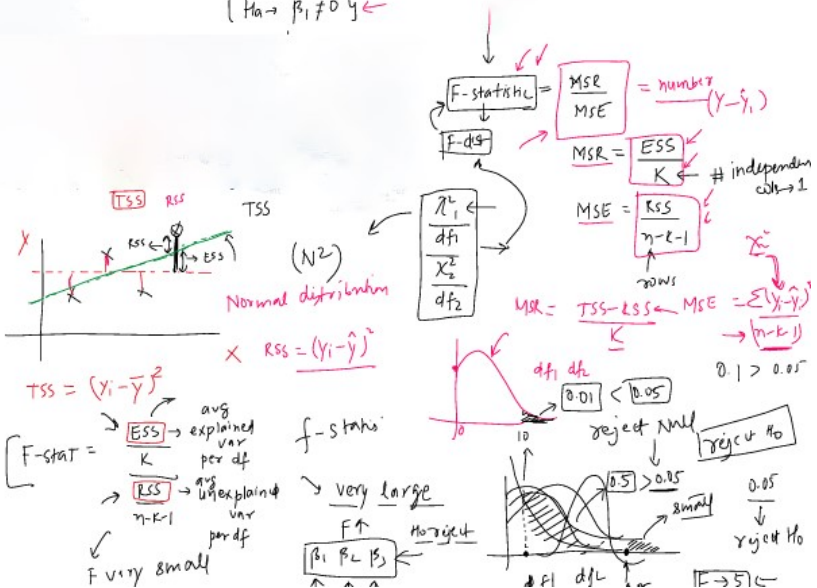 Ha → β₁ ≠ 0 }
F-statistic = MSR / MSE = number
(Y-ŷ₁)
F-dist
MSR = ESS / K ← # independen
cols → 1
MSE = RSS / n-k-1
rows
χ²₁ / df1
χ²₂ / df2
TSS RSS
TSS
Y
RSS
ESS
(N²)
Normal distribution
X
RSS = (yi-ŷ)²
TSS = (yi-ȳ)²
MSR = TSS-RSS / K
MSE = Σ(yi-ŷi)² / (n-k-1)
χ²
0.1 > 0.05
df1 df2
0.01 < 0.05
0
10
reject Null
reject Ho
F-stat = ESS / K
avg explained var per df
RSS / n-k-1
avg unexplained var per df
F very small
f-statis
very large
F↑
Ho reject
β₁ β₂ β₃
0.5 > 0.05
small
0.05
reject Ho
df1 df2
F → 5